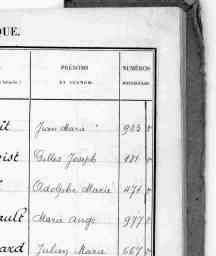 QUE.
PRÉNOMS NUMÉROS
ET SURNOM
it Jean Marie 923
ist Gilles Joseph 121
Adolphe Marie 471
ault Marie Ange 977
ard Julien Marie 667